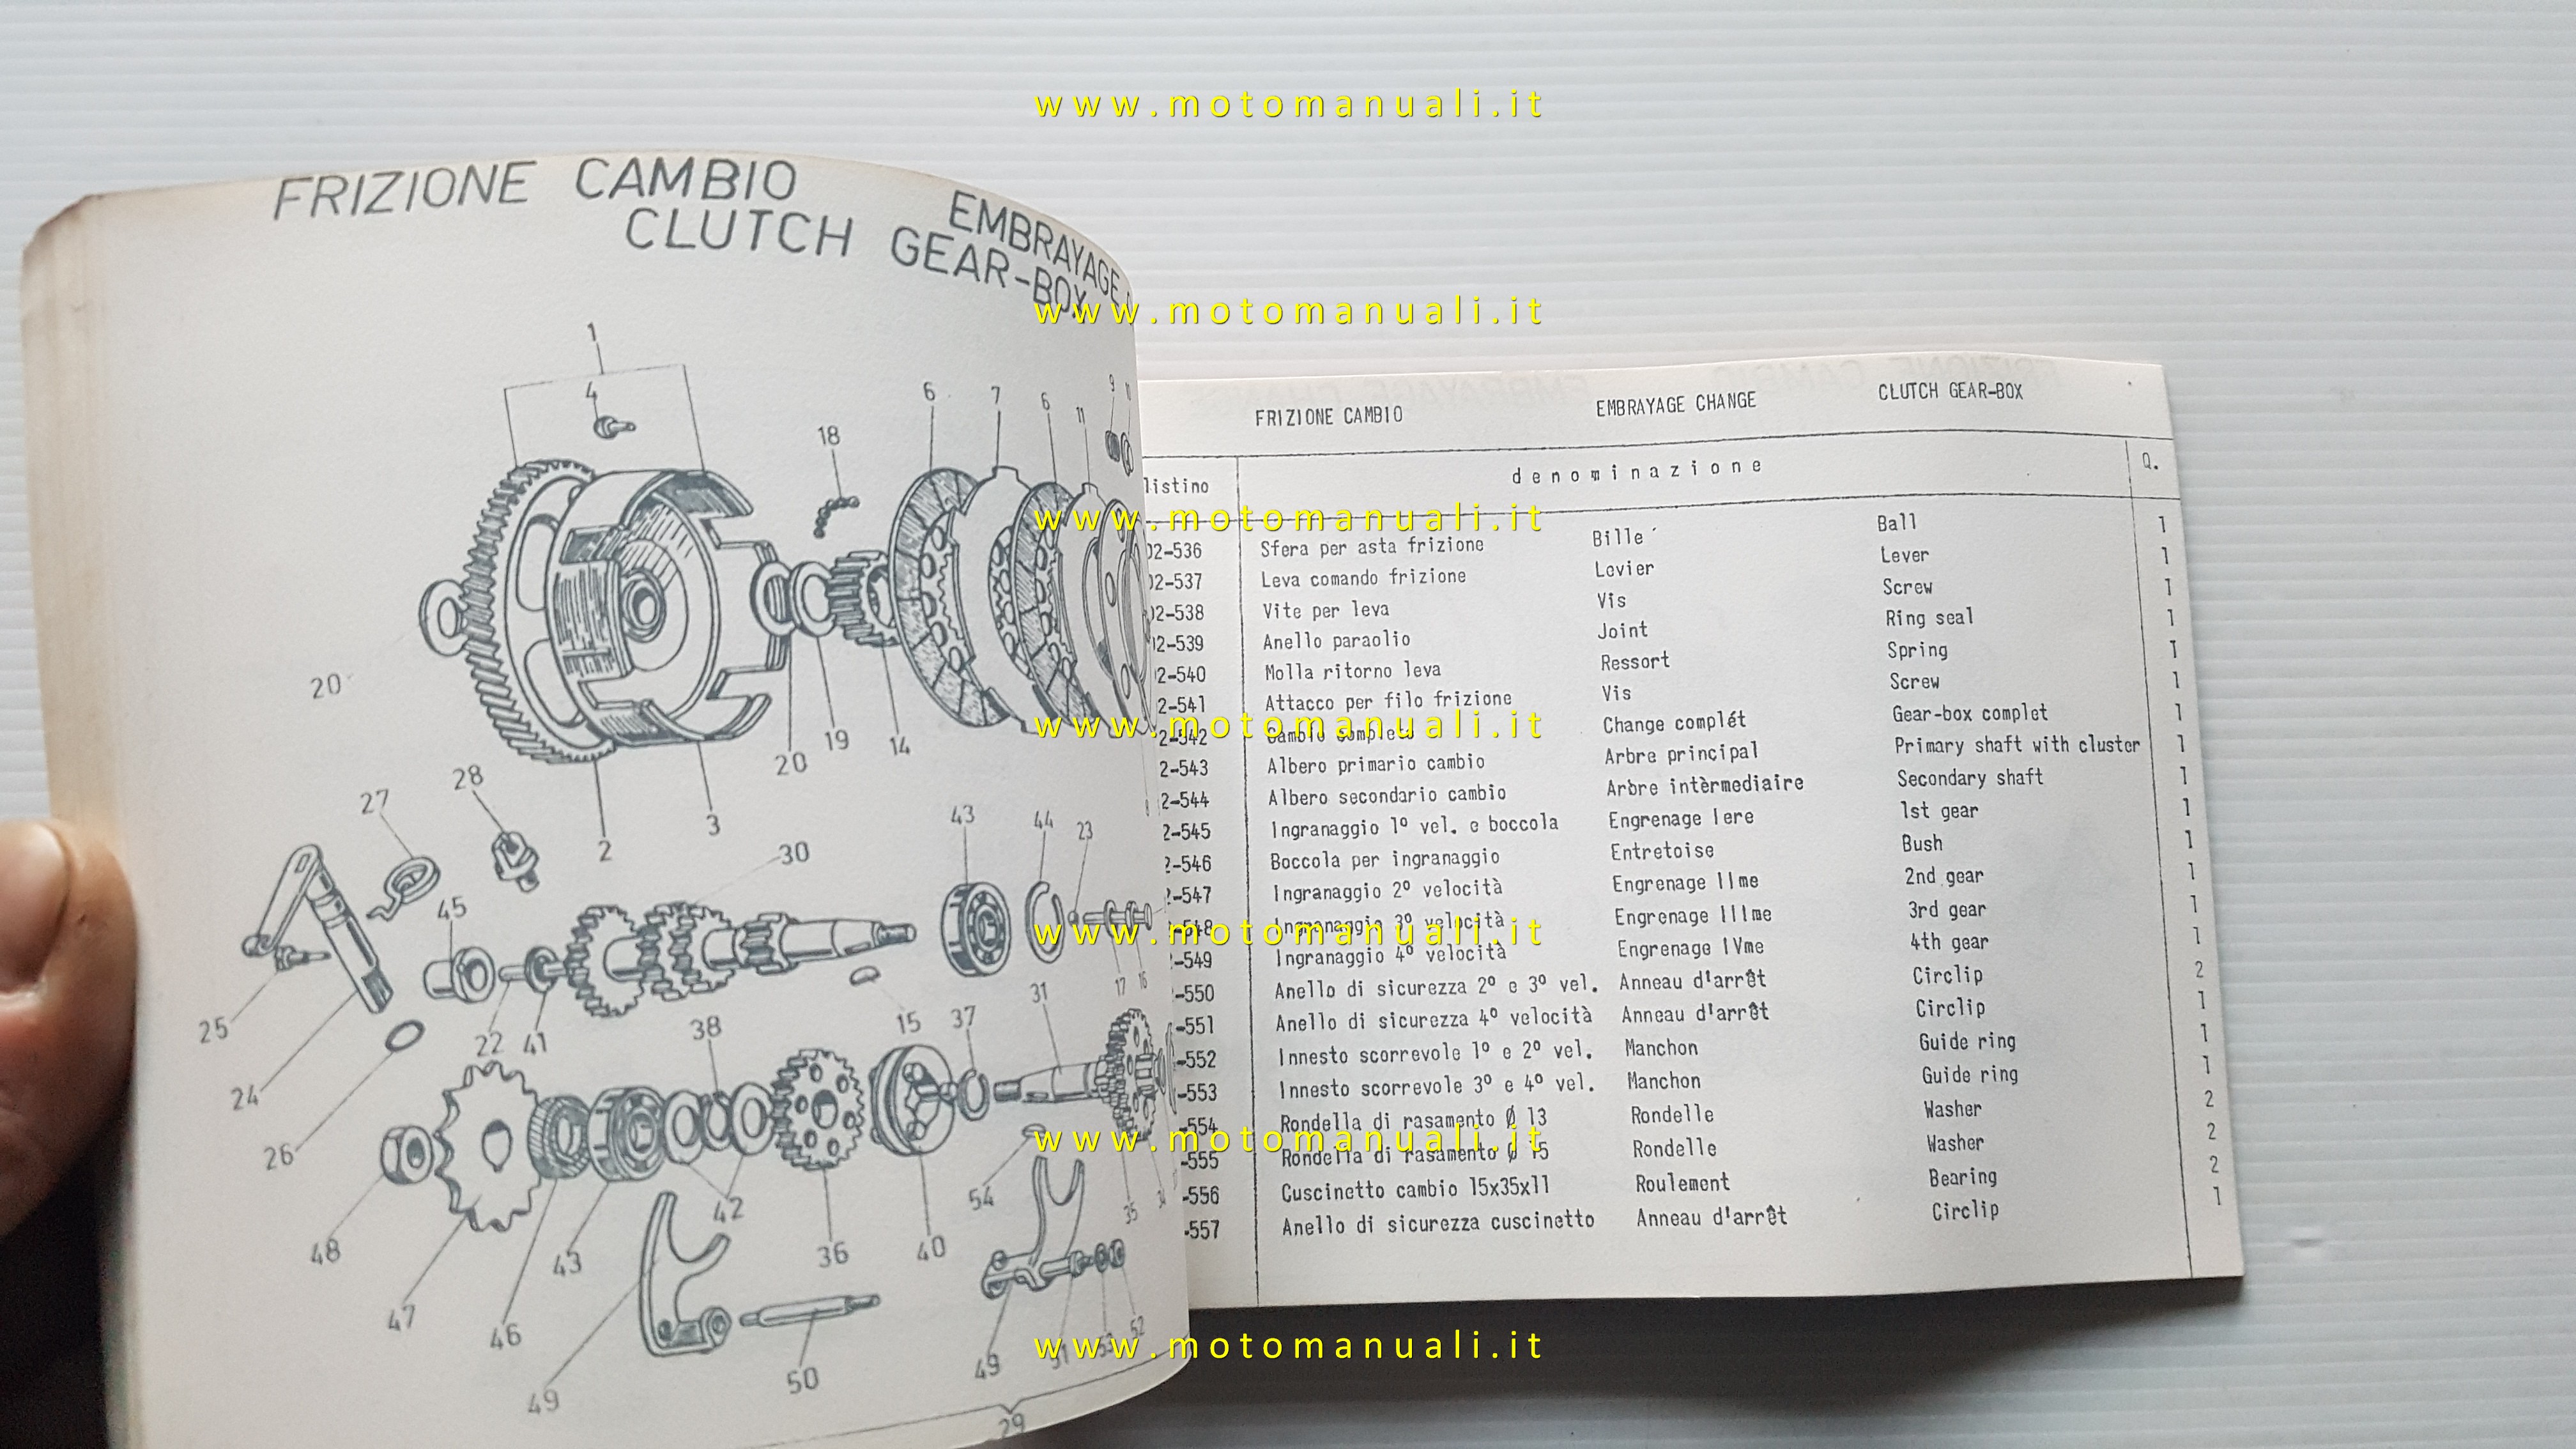 www.motomanuali.it
FRIZIONE CAMBIO
EMBRAYAGE
CLUTCH GEAR-BOX
www.motomanuali.it
1
4
18
6 7 6 11 9
20
20 19 14
2 3
27 28
45
30
43 44 23
25
24
26
22 41
38
15 37 31 17 16
48
47
46
43
42
36
40
54
35
49
50
49
51 53 52
29
FRIZIONE CAMBIO EMBRAYAGE CHANGE CLUTCH GEAR-BOX
listino denominazione Q.
www.motomanuali.it
02-536 Sfera per asta frizione Bille Ball 1
02-537 Leva comando frizione Levier Lever 1
02-538 Vite per leva Vis Screw 1
02-539 Anello paraolio Joint Ring seal 1
2-540 Molla ritorno leva Ressort Spring 1
2-541 Attacco per filo frizione Vis Screw 1
www.motomanuali.it
2-542 Cambio completo Change complét Gear-box complet 1
2-543 Albero primario cambio Arbre principal Primary shaft with cluster 1
2-544 Albero secondario cambio Arbre intèrmediaire Secondary shaft 1
2-545 Ingranaggio 1º vel. e boccola Engrenage Iere 1st gear 1
2-546 Boccola per ingranaggio Entretoise Bush 1
-547 Ingranaggio 2º velocità Engrenage IIme 2nd gear 1
www.motomanuali.it
-548 Ingranaggio 3º velocità Engrenage IIIme 3rd gear 1
-549 Ingranaggio 4º velocità Engrenage IVme 4th gear 1
-550 Anello di sicurezza 2º e 3º vel. Anneau d'arrêt Circlip 2
-551 Anello di sicurezza 4º velocità Anneau d'arrêt Circlip 1
-552 Innesto scorrevole 1º e 2º vel. Manchon Guide ring 1
-553 Innesto scorrevole 3º e 4º vel. Manchon Guide ring 1
-554 Rondella di rasamento Ø 13 Rondelle Washer 2
www.motomanuali.it
-555 Rondella di rasamento Ø 15 Rondelle Washer 2
-556 Cuscinetto cambio 15x35x11 Roulement Bearing 2
-557 Anello di sicurezza cuscinetto Anneau d'arrêt Circlip 1
www.motomanuali.it